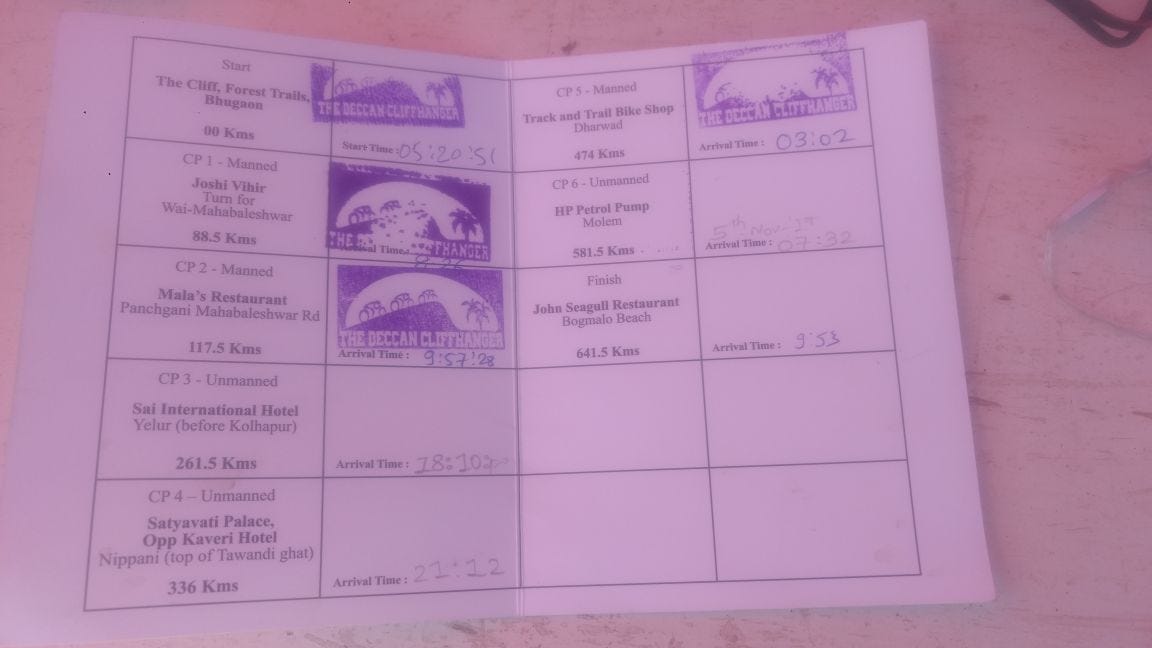 Start
The Cliff, Forest Trails,
Bhugaon
00 Kms
THE DECCAN CLIFFHANGER
Start Time : 05:20:51
CP 1 - Manned
Joshi Vihir
Turn for
Wai-Mahabaleshwar
88.5 Kms
THE DECCAN CLIFFHANGER
CP 2 - Manned
Mala's Restaurant
Panchgani Mahabaleshwar Rd
117.5 Kms
THE DECCAN CLIFFHANGER
Arrival Time : 9:57:28
CP 3 - Unmanned
Sai International Hotel
Yelur (before Kolhapur)
261.5 Kms
Arrival Time : 18:10
CP 4 – Unmanned
Satyavati Palace,
Opp Kaveri Hotel
Nippani (top of Tawandi ghat)
336 Kms
Arrival Time : 21:12
CP 5 - Manned
Track and Trail Bike Shop
Dharwad
474 Kms
THE DECCAN CLIFFHANGER
Arrival Time : 03:02
CP 6 - Unmanned
HP Petrol Pump
Molem
581.5 Kms
5th Nov
Arrival Time : 07:32
Finish
John Seagull Restaurant
Bogmalo Beach
641.5 Kms
Arrival Time : 9:53